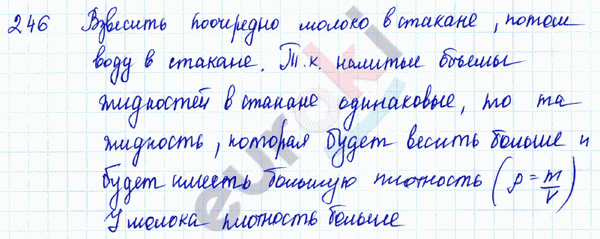 246 Взвесить поочередно молоко в стакане, потом
воду в стакане. Т.к. налитые объемы
жидкостей в стакане одинаковые, то та
жидкость, которая будет весить больше и
будет иметь большую плотность (ρ = m/V)
У молока плотность больше
euroki